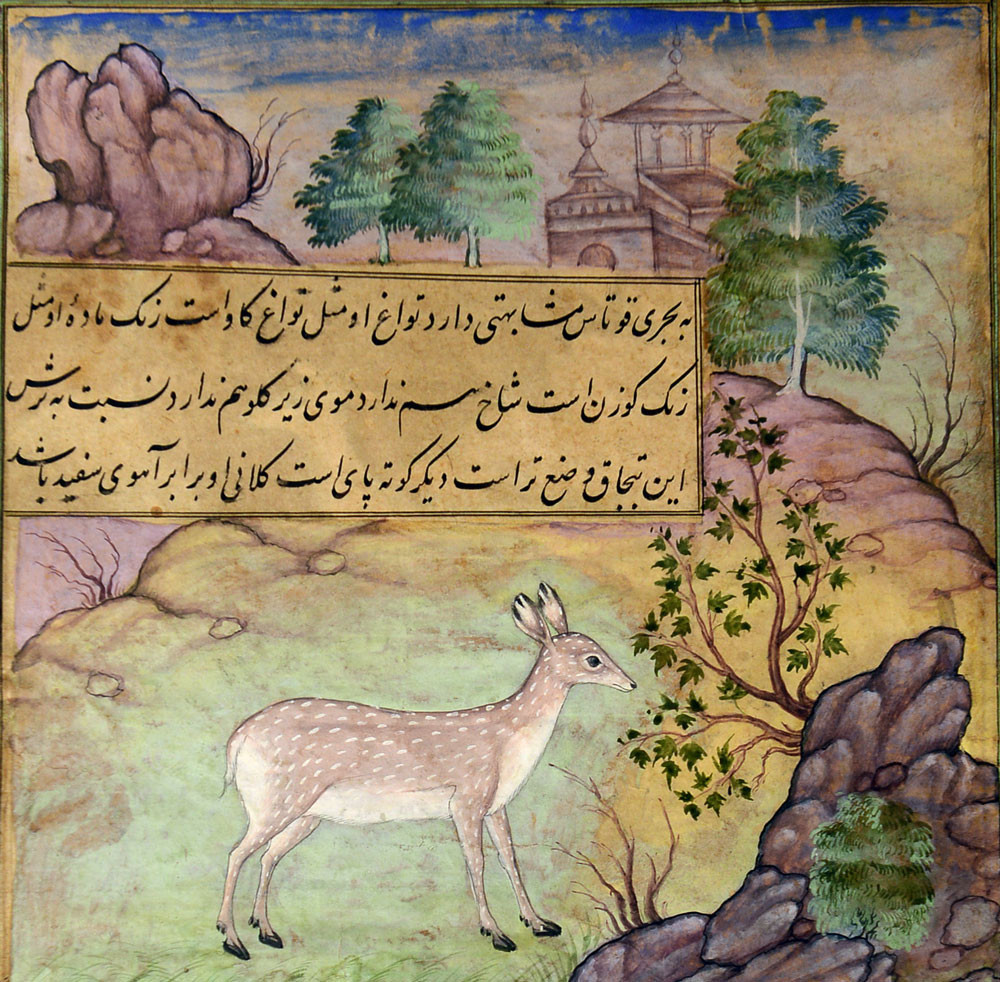 به بحری قوتاس مشابهتی دارد تواغ او مثل تواغ کاو است زنک ماده او مثل
زنک کوزن است شاخ هم ندارد موی زیر کلو هم ندارد نسبت به نرش
این تبجاق وضع تر است دیکر کوته پای است کلانی او برابر آهوی سفید باشد